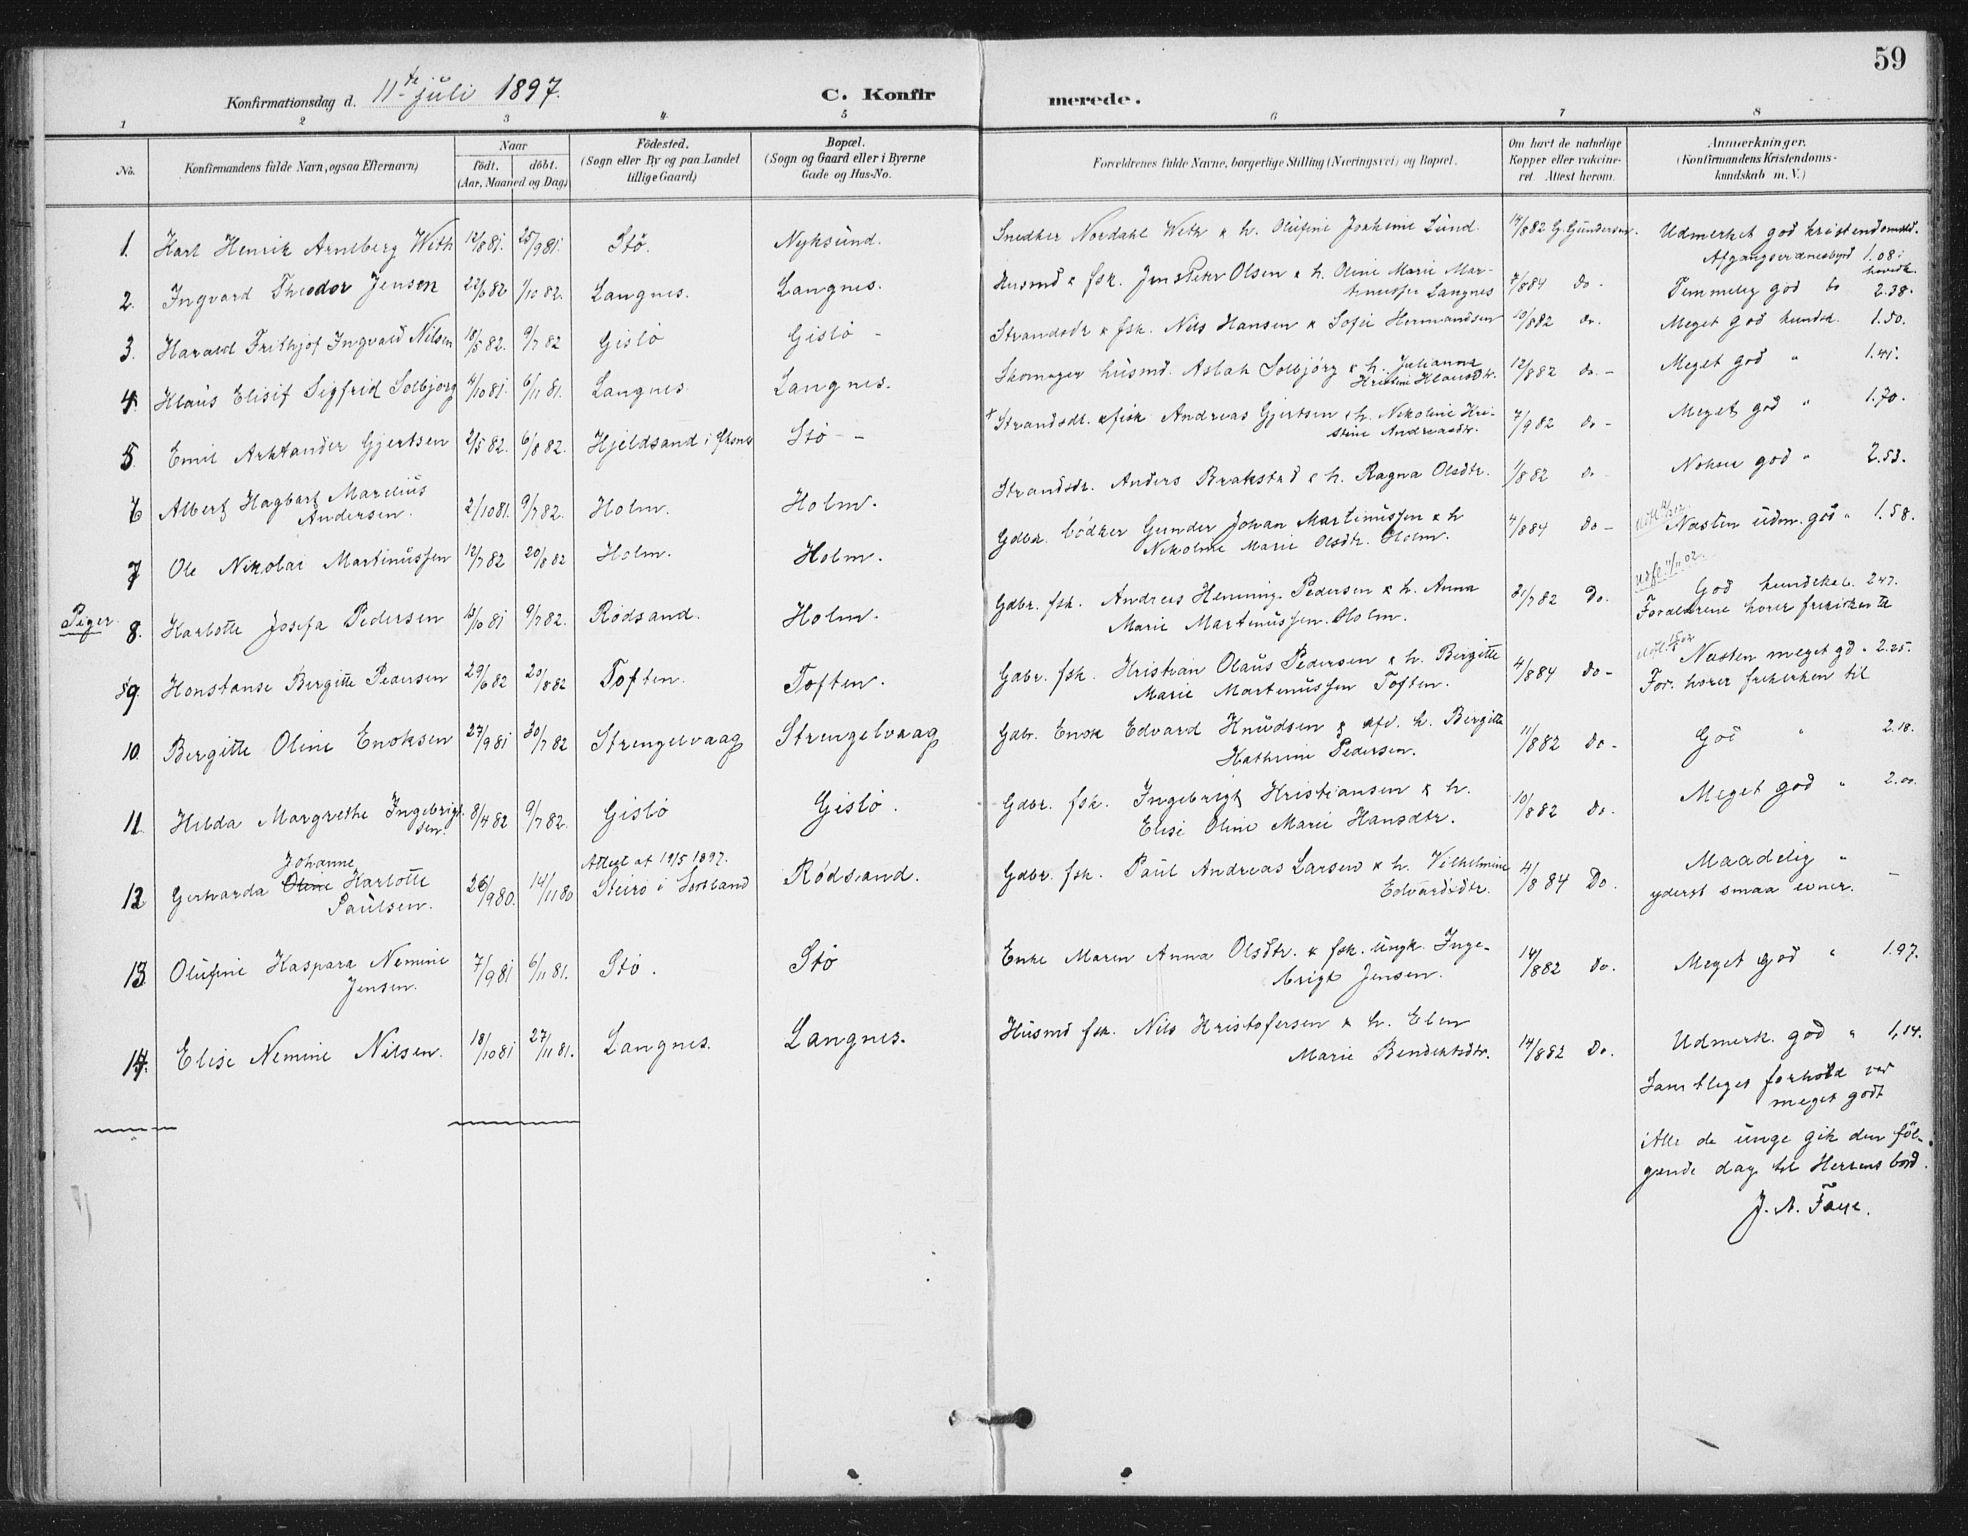 59
Konfirmationsdag d. 11te juli 1897. C. Konfirmerede.
1 2 3 4. 5 6 7 8
No. Konfirmandens fulde Navn, ogsaa Efternavn) Naar födt. döbt. (Aar, Maaned og Dag) Födested. (Sogn eller By og paa Landet tillige Gaard) Bopæl. (Sogn og Gaard eller i Byerne Gade og Hus-No. Forældrenes fulde Navne, borgerlige Stilling (Næringsvei) og Bopæl. Om havt de naturlige Kopper eller vakcineret. Attest herom. Anmærkninger. (Konfirmandens Kristendomskundskab m. V.)
1. Karl Henrik Arntberg Weth 12/8 81. 25/9 81. Stö. Nyksund. Snedker Nordahl Weth & h. Olufine Joakime Lund. 14/8 82 G. Gundersen. Udmerket god kristendomskd.
Afgangsvidnesbyrd 1.08.
2. Ingvard Theodor Jensen 22/6 82 1/10 82. Langnes. Langnes. Husmd & fsk. Jens Peter Olsen & h. Oline Marie Mar-
tinussen Langnes 7/8 84 Do. Temmelig god do 2.38.
3. Harald Frithjof Ingvald Nilsen 10/5 82. 9/7 82 Gislö Gislö Strandsdr & fsk. Nils Hansen & Sofie Hermandsen 10/8 82 Do. Meget god kundsk. 1.50.
4. Klaus Elisif Sigfred Solbjörg 4/10 81 6/11 81. Langnes Langnes. Skomager husmd. Aslak Solbjörg & h. Julianna
Kristine Klausdtr. 12/8 82 Do. Meget god " 1.41.
5. Emil Arktander Gjertsen 2/5 82. 6/8 82. Hjeldsand i Stö Strandsdr. & fisk Andreas Gjertsen & h. Nikoline Kri-
stine Andreasdtr. 7/9 82 Do Meget god " 1.70.
6 Albert Hagbart Marelius
Andersen. 2/10 81. 9/7 82. Holm. Holm. Strandsdr. Anders Brakstad & h. Ragna Olsdtr. 1/8 82 Do Noksaa god " 2.53.
7 Ole Nikolai Martinussen 12/7 82 20/8 82 Holm. Holm. Gdbr. bödker Gunder Johan Martinussen & h
Nikoline Marie Olsdtr. Holm. 4/8 84 Do Næsten udm. god " 1.58.
Piger. 8. Karlotte Josefa Pedersen 13/10 81 9/7 82. Rödsand. Holm. Gdbr. fsk. Andreas Henning Pedersen & h. Anna
Marie Martinussen. Holm. 21/7 82 Do. Udf. 11/11 02. God kundskab. 2.47.
Forældrene hører frikirken til
9 Konstanse Bergitte Pedersen 29/6 82 20/8 82 Toften. Toften. Gdbr. fsk. Kristian Olaus Pedersen & h. Bergitte
Marie Martinussen Toften. 4/8 84 Do Næsten meget gd. 2.25.
For. hører frikirken til
10. Bergitte Oline Enoksen 27/9 81 30/7 82 Strengelvaag Strengelvaag Gdbr. Enok Edvard Knudsen & afd. h. Bergitte
Kathrine Pedersen. 11/8 82 Do God " 2.18.
11. Hilda Margrethe Ingebrigt-
sen 8/4 82 9/7 82. Gislö Gislö. Gdbr. fsk. Ingebrigt Kristiansen & h.
Elise Oline Marie Hansdtr. 10/8 82 Do. Meget god " 2.00.
12 Gerharda Oline Johanne Karlotte
Paulsen. 26/9 80. 14/11 80 Attest af 19/5 1897.
Steirö i Sortland Rödsand. Gdbr. fsk. Paul Andreas Larsen & h. Vilhelmine
Edvardsdtr. 4/8 84 Do. Maadelig "
yderst smaa evner. –
13 Olufine Kaspara Nemine
Jensen. 7/9 81 6/11 81. Stö. Stö Enke Maren Anna Olsdtr. & fsk. ungk. Inge-
brigt Jensen. 14/8 82 Do. Meget god " 1.97.
14. Elise Nemine Nilsen. 18/10 81 27/11 81. Langnes. Langnes. Husmd fsk. Nils Kristofersen & h. Elen
Marie Bendiktsdtr. 14/8 82 Do. Udmerk. god " 1,14.
Samtliges forhold var
meget godt
Alle de unge gik den föl-
gende dag til Herrens bord.
J. A. Faye.